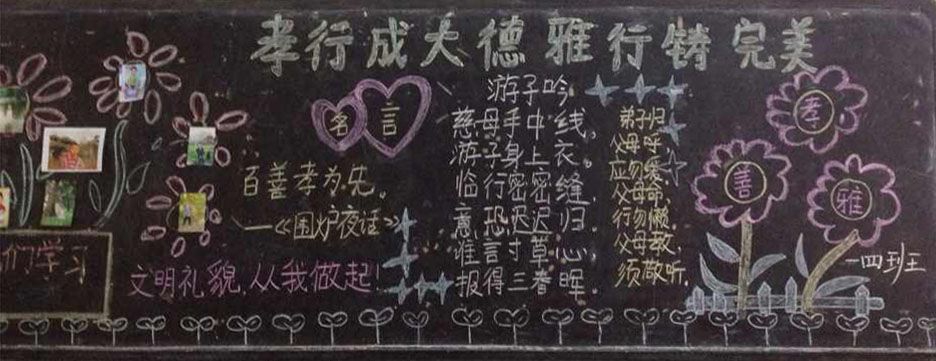 孝行成大德 雅行铸完美
名言
百善孝为先。
——《围炉夜话》
文明礼貌,从我做起!
们学习
游子吟
慈母手中线,
游子身上衣。
临行密密缝,
意恐迟迟归。
谁言寸草心,
报得三春晖。
弟子归
父母呼,
应勿缓,
父母命,
行勿懒,
父母教,
须敬听。
孝
善
雅
一四班王